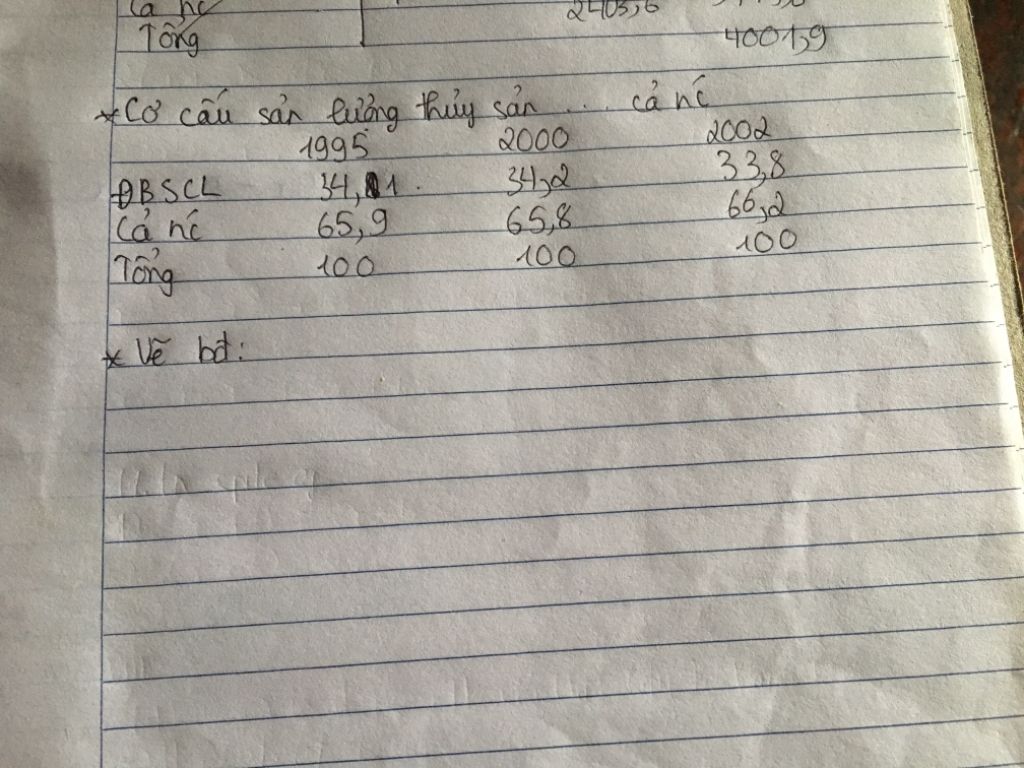 Cả nc
2403,6
Tổng 4001,9
* Cơ cấu sản lưởng thủy sản ... cả nc
1995 2000 2002
ĐBSCL 34,1 34,2 33,8
Cả nc 65,9 65,8 66,2
Tổng 100 100 100
* Vẽ bđ: